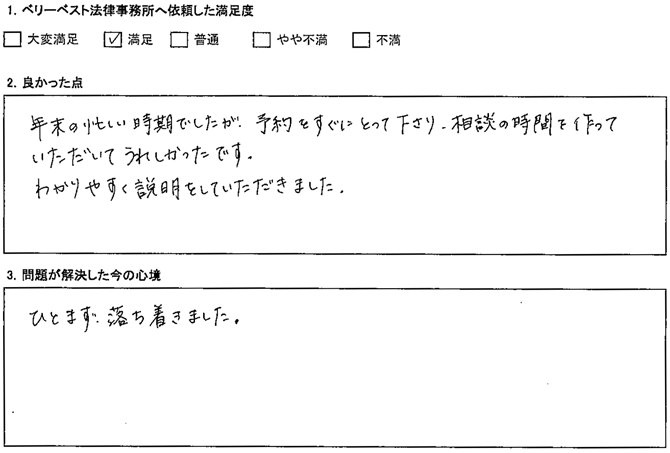 1. ベリーベスト法律事務所へ依頼した満足度
□ 大変満足 ☑ 満足 □ 普通 □ やや不満 □ 不満
2. 良かった点
年末の忙しい時期でしたが、予約をすぐにとって下さり、相談の時間を作って
いただいてうれしかったです。
わかりやすく説明をしていただきました。
3. 問題が解決した今の心境
ひとまず、落ち着きました。